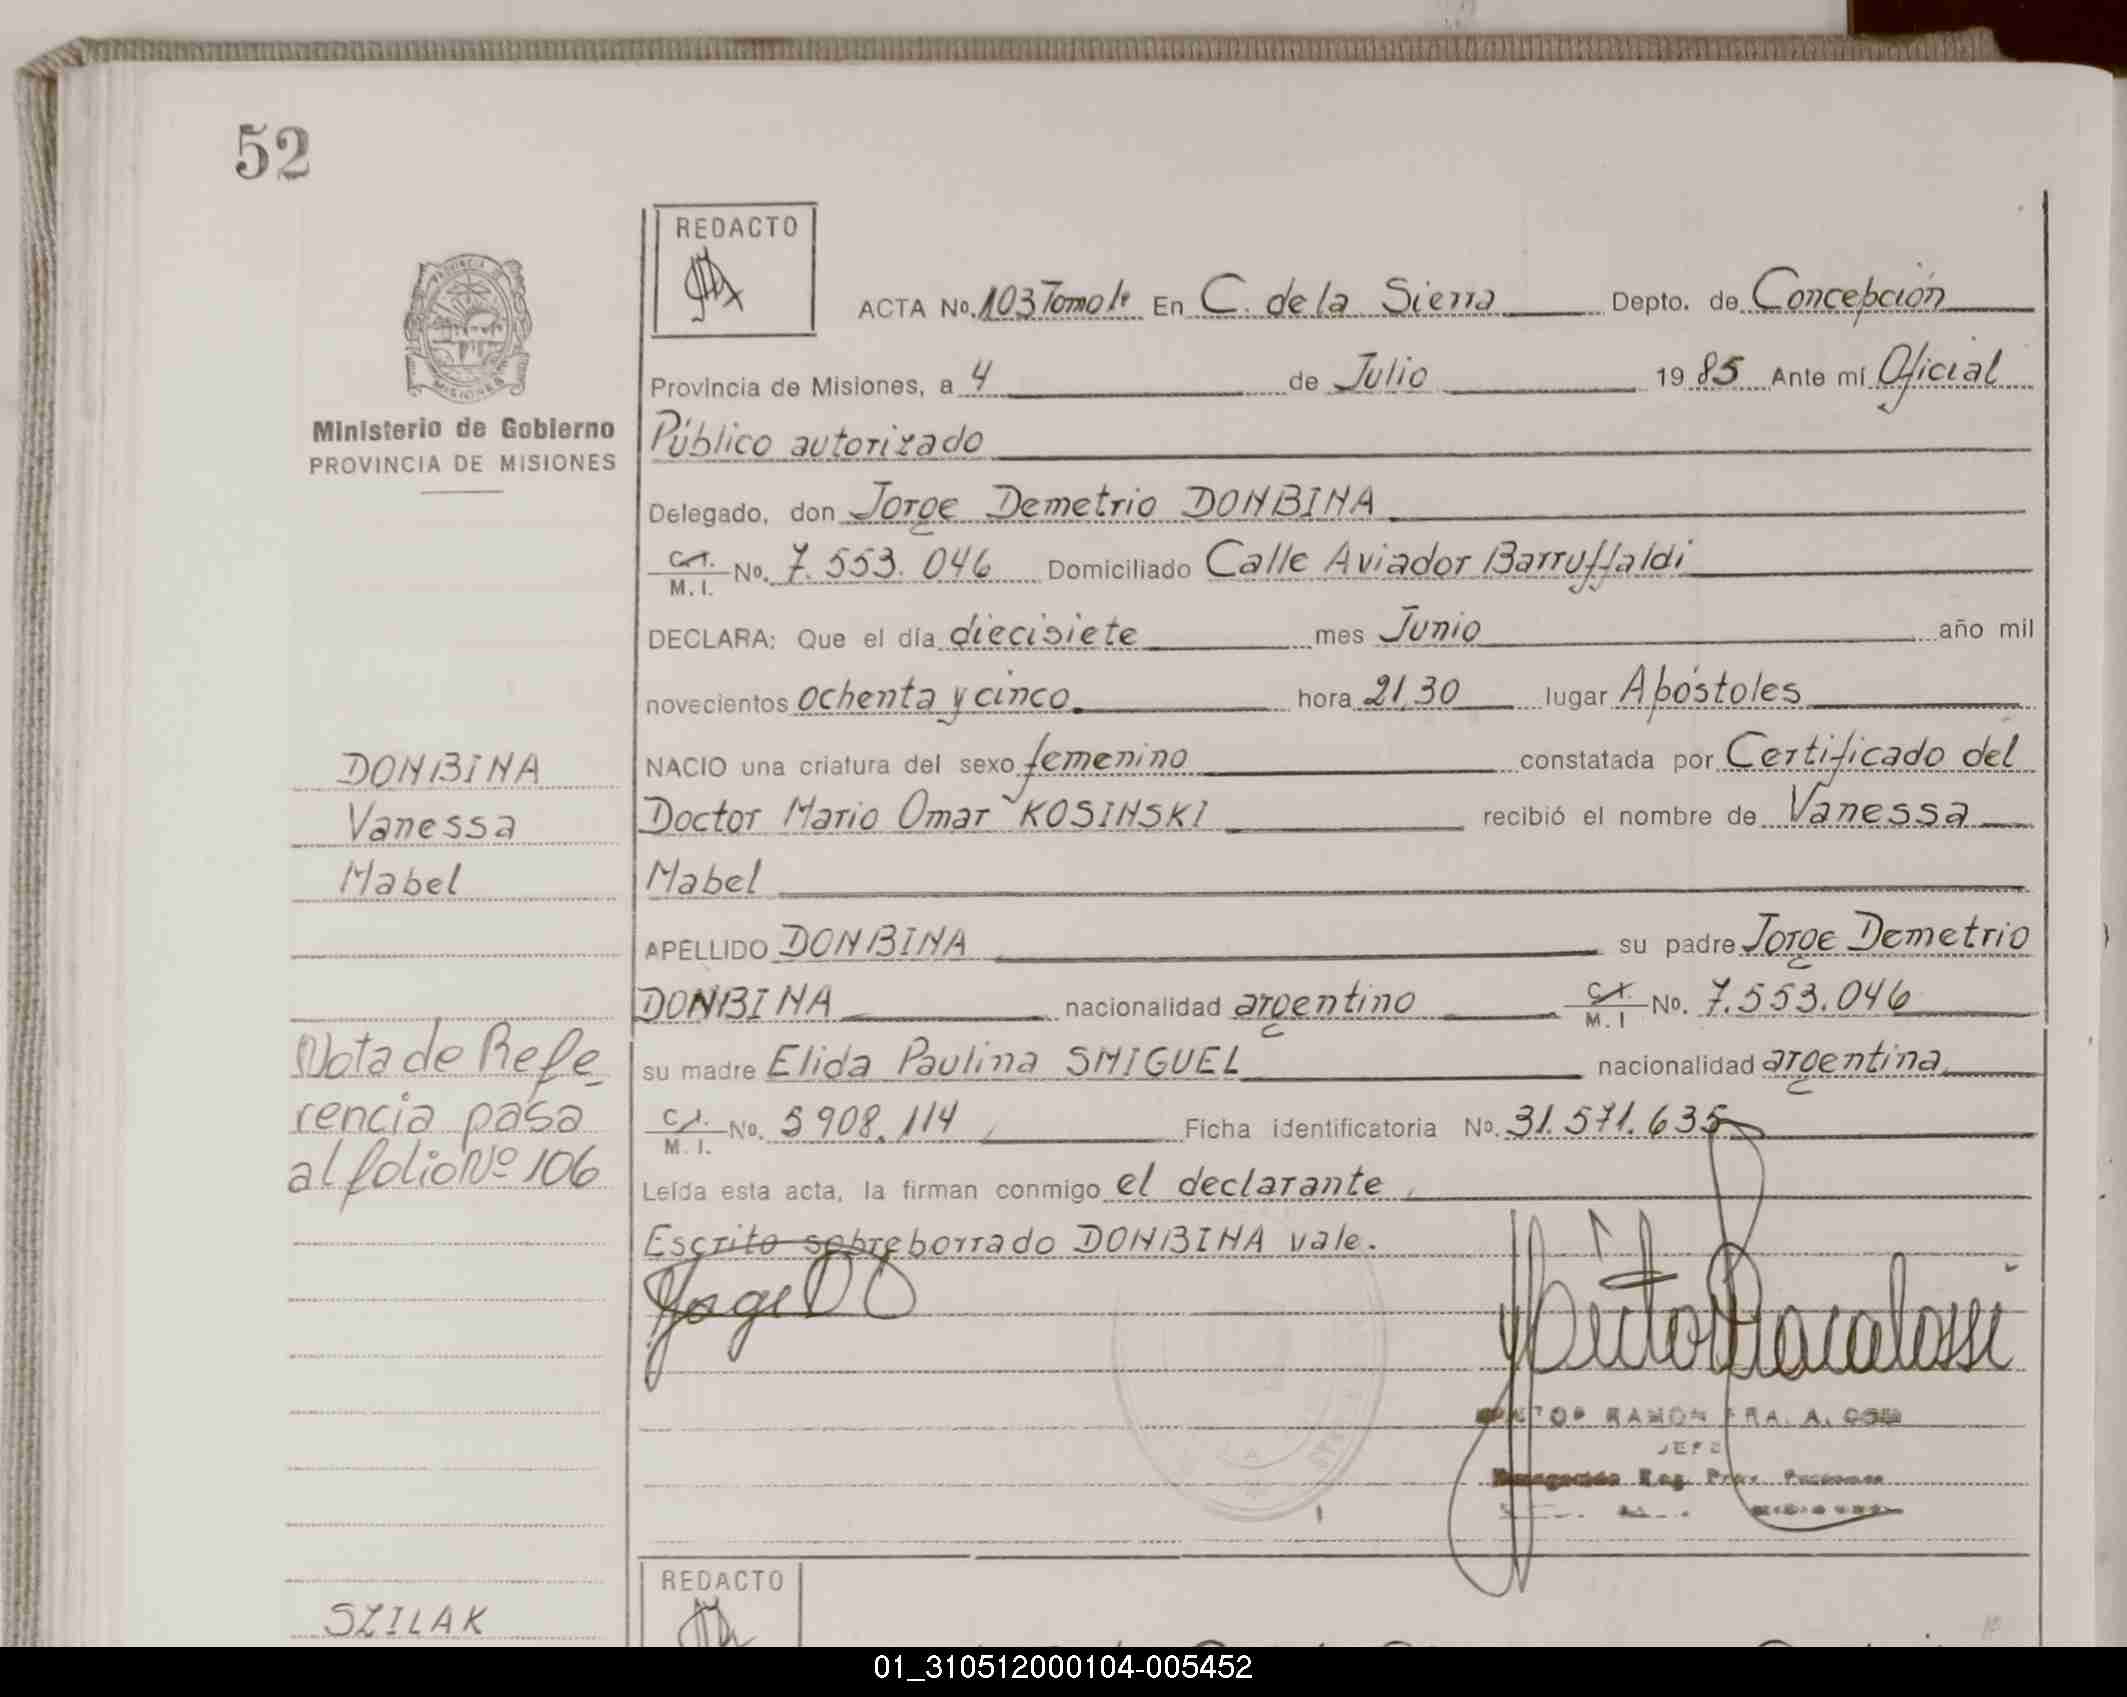 52
REDACTO
PROVINCIA DE
MISIONES
Ministerio de Gobierno
PROVINCIA DE MISIONES
ACTA No. 103 Tomo 1º En C. de la Sierra Depto. de Concepción
Provincia de Misiones, a 4 de Julio 19 85 Ante mí Oficial
Público autorizado
Delegado, don Jorge Demetrio DONBINA
C.I. / M. I. No. 7.553.046 Domiciliado Calle Aviador Barruffaldi
DECLARA: Que el día diecisiete mes Junio año mil
novecientos ochenta y cinco hora 21,30 lugar Apóstoles
NACIO una criatura del sexo femenino constatada por Certificado del
Doctor Mario Omar KOSINSKI recibió el nombre de Vanessa
Mabel
APELLIDO DONBINA su padre Jorge Demetrio
DONBINA nacionalidad argentino C.I. / M. I No. 7.553.046
su madre Elida Paulina SMIGUEL nacionalidad argentina
C.I. / M. I. No. 5908.114 Ficha identificatoria No. 31.571.635
Leída esta acta, la firman conmigo el declarante
Escrito sobreborrado DONBINA vale.
Jorge D
DONBINA
Vanessa
Mabel
Nota de Refe-
rencia pasa
al folio Nº 106
RAMON
JEFE
Reg. Prov.
REDACTO
SZILAK
01_310512000104-005452